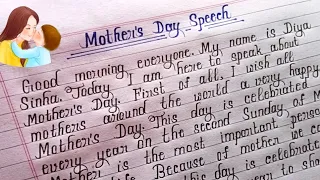 Mother's Day Speech
Good morning, everyone. My name is Diya
Sinha. Today, I am here to speak about
Mother's Day. First of all, I wish all
mothers around the world a very happy
Mother's Day. This day is celebrated
every year on the second Sunday of M
Mother is the most important perso
this. Because of mother we co
this day is celebrate
year to sho